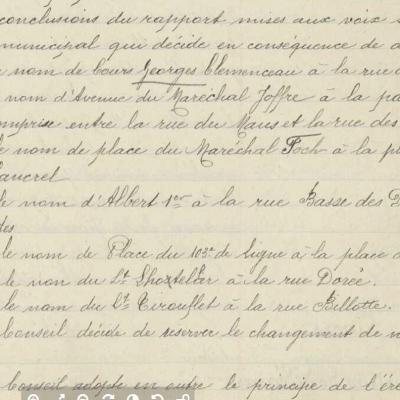 conclusions du rapport mises aux voix s
municipal qui décide en conséquence de d
e nom de Cours Georges Clemenceau à la rue d
nom d'Avenue du Maréchal Joffre à la pa
omprise entre la rue du Mans et la rue des
le nom de place du Maréchal Foch à la pl
aucret
le nom d'Albert 1er à la rue Basse des
des
le nom de Place du 103e de ligne à la place d
le nom du Lt à la rue Dorée.
le nom du Lt Tirouflet à la rue Billotte.
Conseil décide de réserver le changement de n
Conseil adopte en outre le principe de l'ére